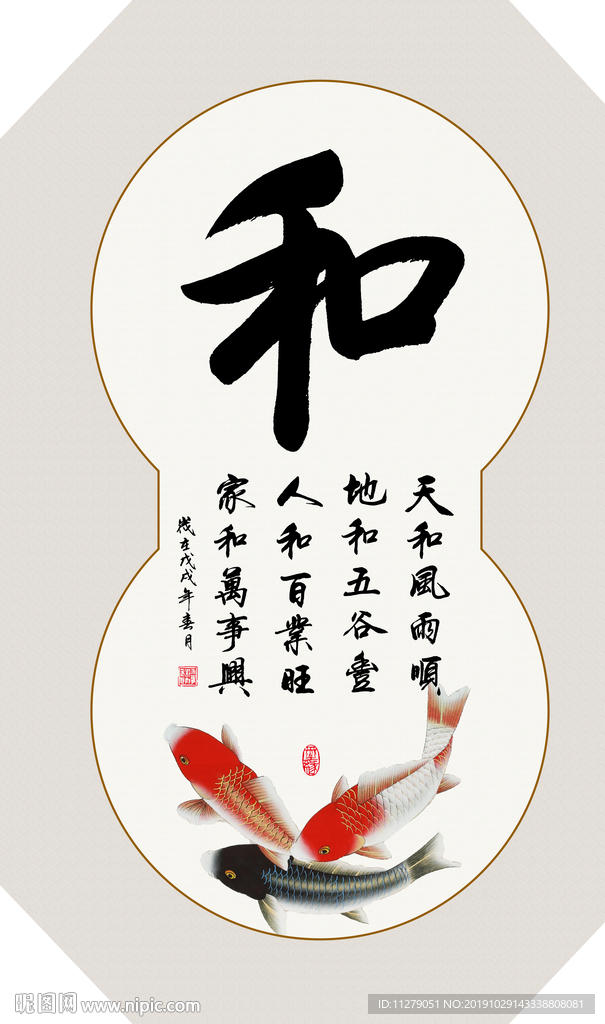 和
天和風雨順
地和五谷豊
人和百業旺
家和萬事興
歲在戊戌年春月
昵图网 www.nipic.com
ID:11279051 NO:20191029143338808081